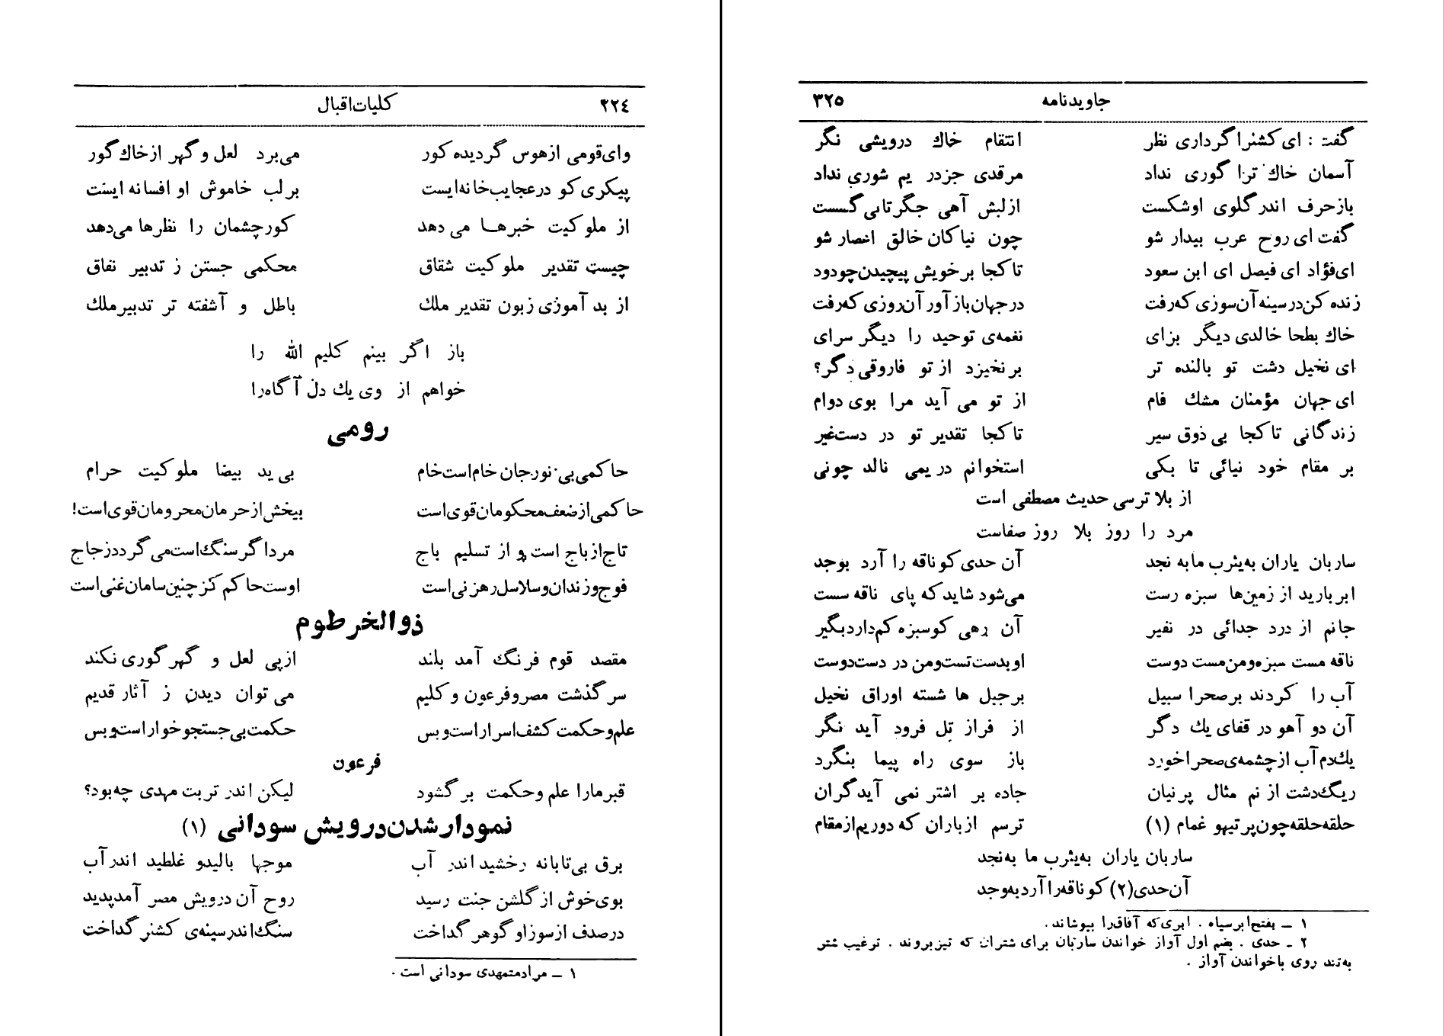 ۲۲٤ کلیات‌اقبال
وای‌قومی ازهوس گردیده کور می‌برد لعل و گهر ازخاك گور
پیکری کو درعجایب‌خانه‌ایست برلب خاموش او افسانه ایست
از ملوکیت خبرهـا می دهد کورچشمان را نظرها می‌دهد
چیست تقدیر ملوکیت شقاق محکمی جستن ز تدبیر نفاق
از بد آموزی زبون تقدیر ملك باطل و آشفته تر تدبیرملك
باز اگر بینم کلیم الله را
خواهم از وی یك دل آگاه‌را
رومی
حاکمی‌بی‌نورجان خام‌است‌خام بی ید بیضا ملوکیت حرام
حاکمی‌ازضعف‌محکومان‌قوی‌است بیخش‌ازحرمان‌محرومان‌قوی‌است!
تاج‌ازباج است و از تسلیم باج مرداگرسنگ‌است‌می‌گرددزجاج
فوج‌وزندان‌وسلاسل‌رهزنی‌است اوست‌حاکم‌کزچنین‌سامان‌غنی‌است
ذوالخرطوم
مقصد قوم فرنگ آمد بلند ازپی لعل و گهر گوری نکند
سرگذشت مصروفرعون وکلیم می توان دیدن ز آثار قدیم
علم‌وحکمت کشف‌اسراراست‌وبس حکمت‌بی‌جستجوخواراست‌وبس
فرعون
قبرمارا علم وحکمت برگشود لیکن اندر تربت مهدی چه‌بود؟
نمودارشدن‌درویش سودانی (۱)
برق بی‌تابانه رخشید اندر آب موجها بالیدو غلطید اندرآب
بوی‌خوش ازگلشن جنت رسید روح آن درویش مصر آمدپدید
درصدف ازسوزاوگوهرگداخت سنگ‌اندرسینه‌ی کشنر گداخت
۱ ــ مرادمتمهدی سودانی است .
جاویدنامه ۳۲۵
گفت : ای‌کشنراگرداری نظر انتقام خاك درویشی نگر
آسمان خاك ترا گوری نداد مرقدی جزدر یم شوری نداد
بازحرف اندرگلوی اوشکست ازلبش آهی جگرتابی‌گسست
گفت ای روح عرب بیدار شو چون نیاکان خالق اعصار شو
ای‌فؤاد ای فیصل ای ابن سعود تاکجا برخویش پیچیدن‌چودود
زنده‌کن‌درسینه‌آن‌سوزی‌که‌رفت درجهان‌بازآورآن‌روزی‌که‌رفت
خاك بطحا خالدی دیگر بزای نغمه‌ی توحید را دیگر سرای
ای نخیل دشت تو بالنده تر برنخیزد از تو فاروقی‌دگر؟
ای‌جهان مؤمنان مشك فام از تو می آید مرا بوی دوام
زندگانی تاکجا بی‌ذوق سیر تاکجا تقدیر تو در دست‌غیر
بر مقام خود نیائی تا بکی استخوانم دریمی نالد چونی
از بلا ترسی حدیث مصطفی است
مرد را روز بلا روز صفاست
ساربان یاران به‌یثرب مابه نجد آن حدی‌کوناقه را آرد بوجد
ابربارید از زمین‌ها سبزه رست می‌شود شایدکه پای ناقه سست
جانم از درد جدائی در نفیر آن رهی کوسبزه کم‌داردبگیر
ناقه مست سبزه‌ومن‌مست دوست اوبدست‌تست‌ومن در دست‌دوست
آب را کردند برصحرا سبیل برجبل ها شسته اوراق نخیل
آن دو آهو در قفای یك دگر از فراز تل فرود آید نگر
یك‌دم‌آب ازچشمه‌ی‌صحراخورد باز سوی راه پیما بنگرد
ریگ‌دشت از نم مثال پرنیان جاده بر اشتر نمی آیدگران
حلقه‌حلقه‌چون‌پرتیهو غمام (۱) ترسم ازباران که دوریم‌ازمقام
ساربان یاران به‌یثرب ما به‌نجد
آن‌حدی(۲)کوناقه‌راآردبه‌وجد
۱ ــ بفتح‌ابرسیاه . ابری‌که آفاق‌را بپوشاند .
۲ ـ حدی . بضم اول آواز خواندن ساربان برای شتران که تیزبروند . ترغیب شتر
به‌تند روی باخواندن آواز .